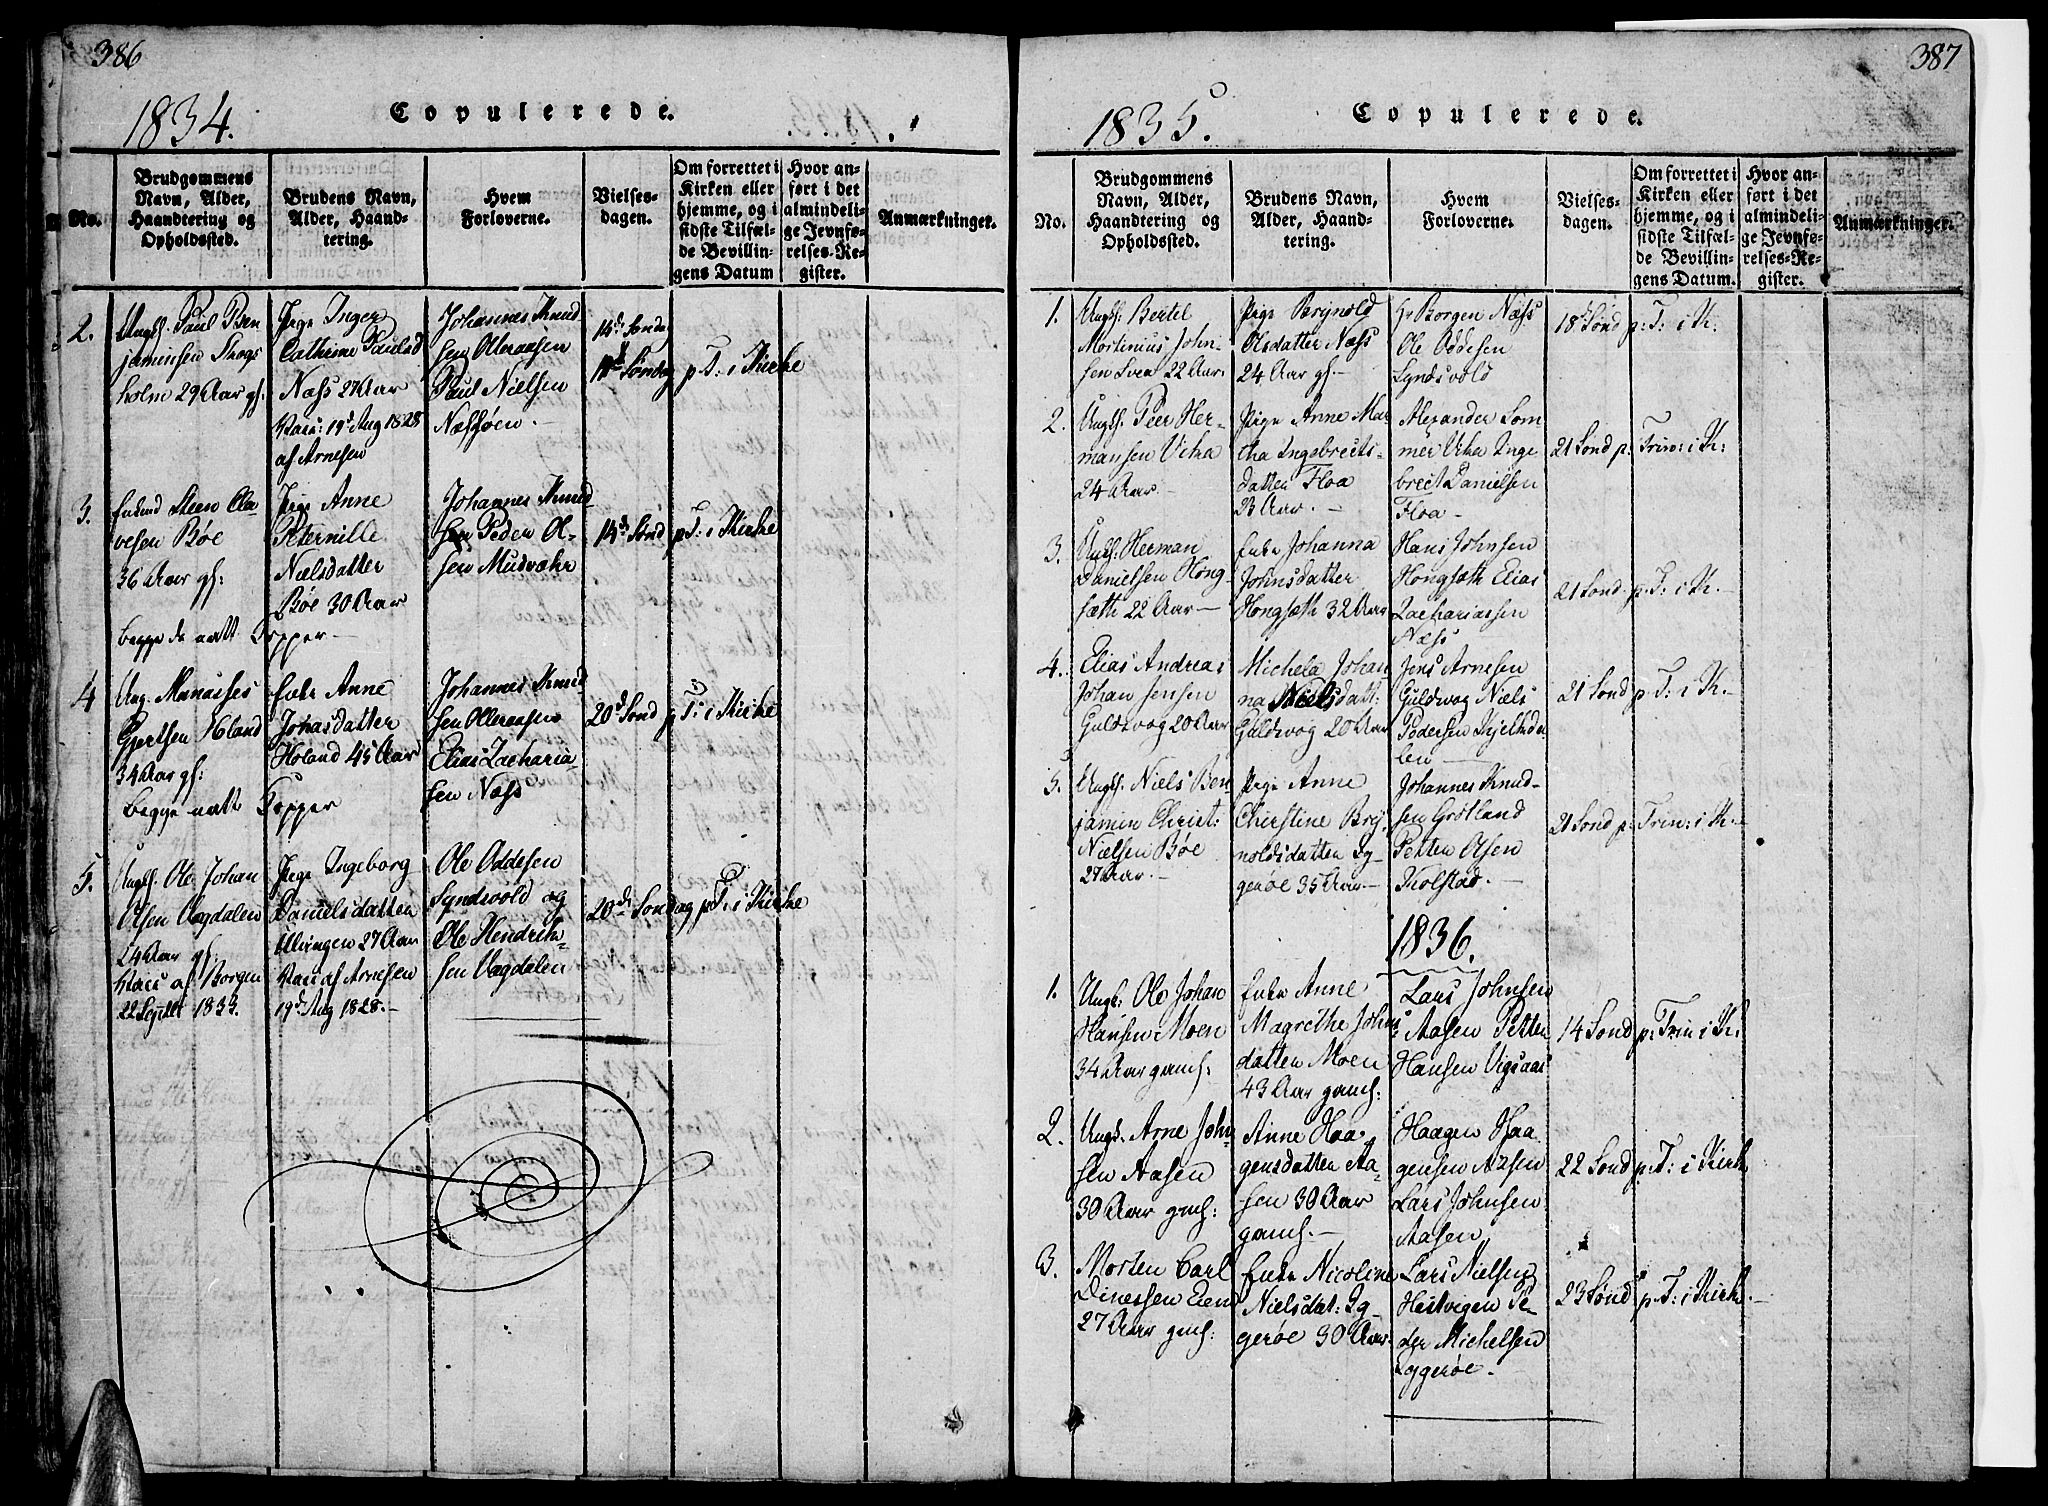 386
1834.
Copulerede.
No.
Brudgommens
Navn, Alder,
Haandtering og
Opholdssted.
Brudens Navn,
Alder, Haand-
tering.
Hvem
Forloverne.
Vielses-
dagen.
Om forrettet i
Kirken eller
hjemme, og i
sidste Tilfæl-
de Bevillin-
gens Datum
Hvor an-
ført i det
almindeli-
ge Jevnfø-
relses-Re-
gister.
Anmærkninger.
2.
Ungk. Paul Ben
jaminsen
holm 29 Aar gl:
Pige Inger
Cathrine Paulsd
Næss 27 Aar
Vacc: 19d Aug 1828
af Arnesen
Johannes Knud
sen Olleraasen
Paul Nielsen
Næssøen.
14d Søndag
p T: i Kirke
3.
Enkmd Steen Cla-
vesen Bøe
36 Aar gl:
Pige Anne
Peternille
Nielsdatter
Bøe 30 Aar
begge de natt Copper
Johannes Knud
sen Peder Ol-
sen Mudvahr
14d Sønd p T: i Kirke
4
Ung. Manasses
Gjertsen Høland
34 Aar gl:
Enke Anne
Johasdatter
Høland 45 Aar
begge natt Copper
Johannes Knud
sen Olleraasen
Elias Zacharia
sen Næss
20d Sønd p T: i Kirke
5.
Ungk. Ole Johan
Olsen Vagdalen
24 Aar gl.
Vacc af Borgen
22 Septbr 1833.
Pige Ingeborg
Danielsdatter
Ulvingen 27 Aar
Vacc af Arnesen
19d Aug 1828.
Ole Oddesen
Syndsvold og
Ole Hendrik-
sen Vagdalen
20d Søndag p T: i Kirke
387
1835.
Copulerede.
No.
Brudgommens
Navn, Alder,
Haandtering og
Opholdssted.
Brudens Navn,
Alder, Haand-
tering.
Hvem
Forloverne.
Vielses-
dagen.
Om forrettet i
Kirken eller
hjemme, og i
sidste Tilfæl-
de Bevillin-
gens Datum.
Hvor an-
ført i det
almindeli-
ge Jevnfø-
relses-Re-
gister.
Anmærkninger.
1.
Ungk. Bertel
Mortinius John-
sen 22 Aar.
Pige Brynold
Olsdatter Næss
24 Aar gl.
Hr Borgen Næss
Ole Oddesen
Syndsvold
18d Sønd p: T: i K:
2.
Ungk. Peer Her-
mansen Vika
24 Aar.
Pige Anne Mar
tha Ingebreits-
datter Floa
23 Aar.
Alexander Som
mer Vika Inge
brect Danielsen
Floa
21 Sønd p: Trin: i K:
3.
Ungk. Herman
Danielsen Hong-
sæth 22 Aar
Enke Johanna
Johnsdatter
Hongsæth 32 Aar
Hans Johnsen
Hongsæth Elias
Zachariassen
Næss
21 Sønd. p. T: i K.
4.
Elias Andreas
Johan Jensen
Guldsvog 20 Aar
Michela Johan
na Nielsdatt:
Guldsvog 20 Aar
Jens Arnesen
Guldsvog Niels
Pedersen
len
21 Sønd p: T: i K.
5.
Ungk. Niels Ben
jamin Christ:
Nielsen Bøe
27 Aar.
Pige Anne
Christine Bry-
noldsdatter Ig-
gerøe 35 Aar.
Johannes Knud-
sen Grøtland
Petter Olsen
Tholstad.
21 Sønd p: Trin: i K.
1836.
1.
Ungk: Ole Johan
Hansen Moen
34 Aar gaml:
Enke Anne
Magrethe Johns
datter Moen
43 Aar gaml:
Lars Johnsen
Aasen Petter
Hansen Vigsaas
14 Sønd p: Trin i K:
2.
Ungk. Arne John
sen Aasen
30 Aar gml:
Anne Haa-
gensdatter Aa-
sen 30 Aar
gaml.
Haagen Haa
gensen Aasen
Lars Johnsen
Aasen
22 Sønd p: T: i Kirk
3.
Morten Carl
Dinessen Eend
27 Aar gml:
Enke Nicoline
Nielsdat: Ig-
gerøe 30 Aar.
Lars Nielsen
Hestvigen Pe-
der Michelsen
Iggerøe.
23 Sønd p. T: i Kirk.